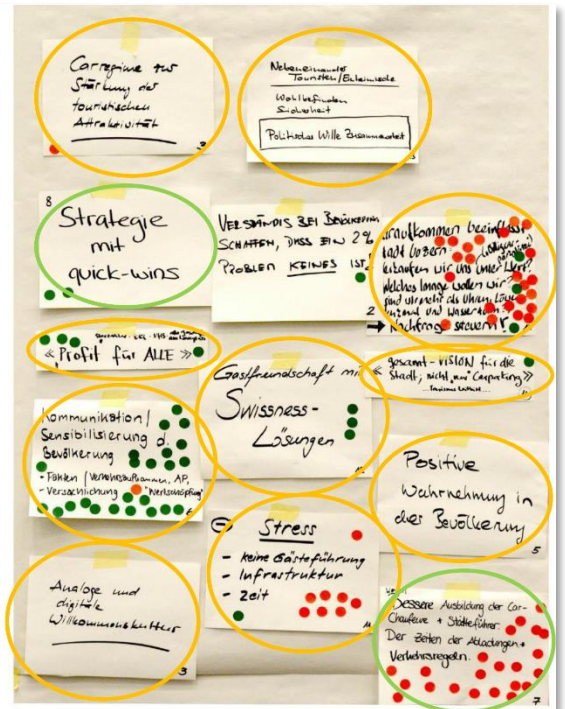 Carregime zur
Stärkung der
touristischen
Attraktivität
Nebeneinander
Touristen/Einheimische
Wohlbefinden
Sicherheit
Politischer Wille Zusammenarbeit
8
Strategie
mit
quick-wins
VERSTÄNDIS BEI BEVÖLKERUNG
SCHAFFEN, DASS EIN 2%
PROBLEM KEINES IST!
beeinflusst
verkaufen wir uns unter Wert?
welches Image wollen wir?
sind wir mehr als Uhren, Löwe
und
2
→ Nachfrage steuern?
«Profit für ALLE»
Gesamt-VISION für die
« Stadt, nicht "nur" Carparking »
Gastfreundschaft mit
Swissness-
Lösungen
Kommunikation/
Sensibilisierung d.
Bevölkerung
- Fakten/Verkehrsaufkommen, AP,
- Versachlichung "Wertschöpfung"
6
Positive
Wahrnehmung in
der Bevölkerung
5
Stress
- keine Gästeführung
- Infrastruktur
- Zeit
Analoge und
digitale
Willkommenskultur
3
Bessere Ausbildung der Car-
Chauffeure + Städteführer.
Der Zeiten der Abladungen +
Verkehrsregeln.
7